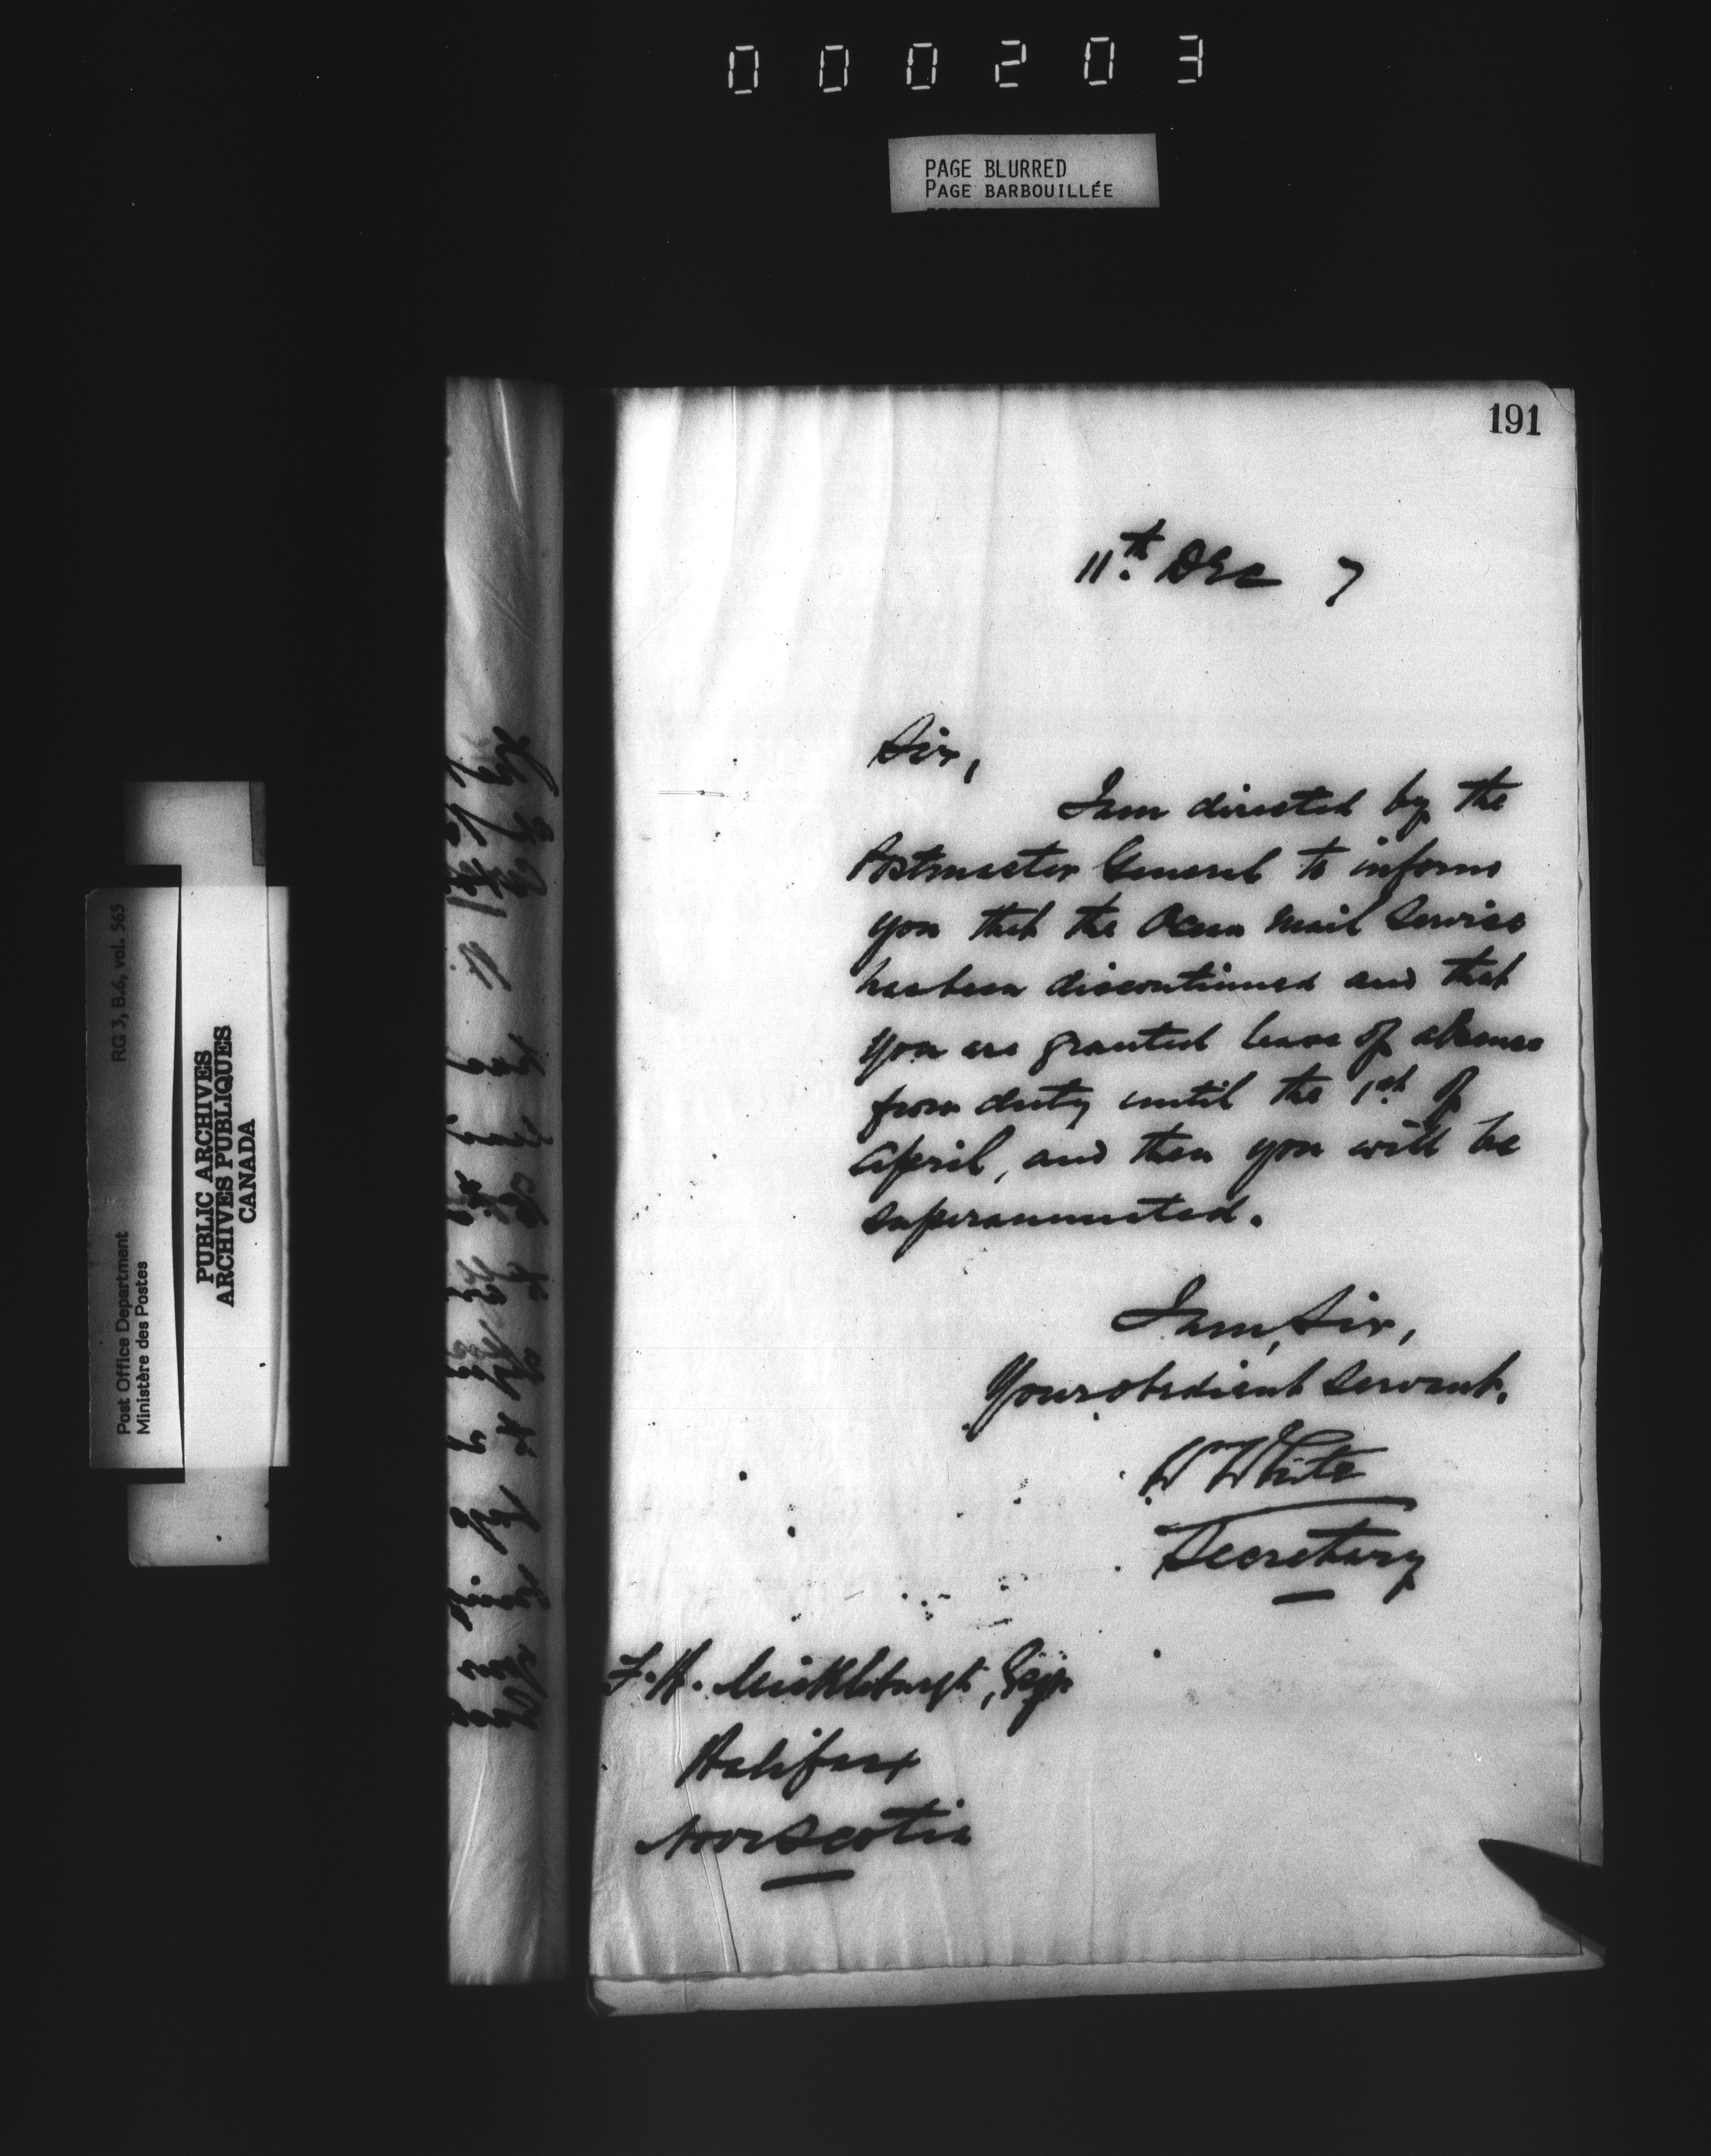 000203
PAGE BLURRED
PAGE BARBOUILLÉE
191
11th. Dec 7
Sir,
I am directed by the
Postmaster General to inform
you that the Ocean Mail Service
has been discontinued and that
you are granted leave of absence
from duty until the 1st of
April, and then you will be
superannuated.
I am, Sir,
Your obedient servant.
W White
Secretary
F. H. Esqr
Halifax
Nova Scotia
RG 3, B.6, vol. 565
Post Office Department
Ministère des Postes
PUBLIC ARCHIVES
ARCHIVES PUBLIQUES
CANADA